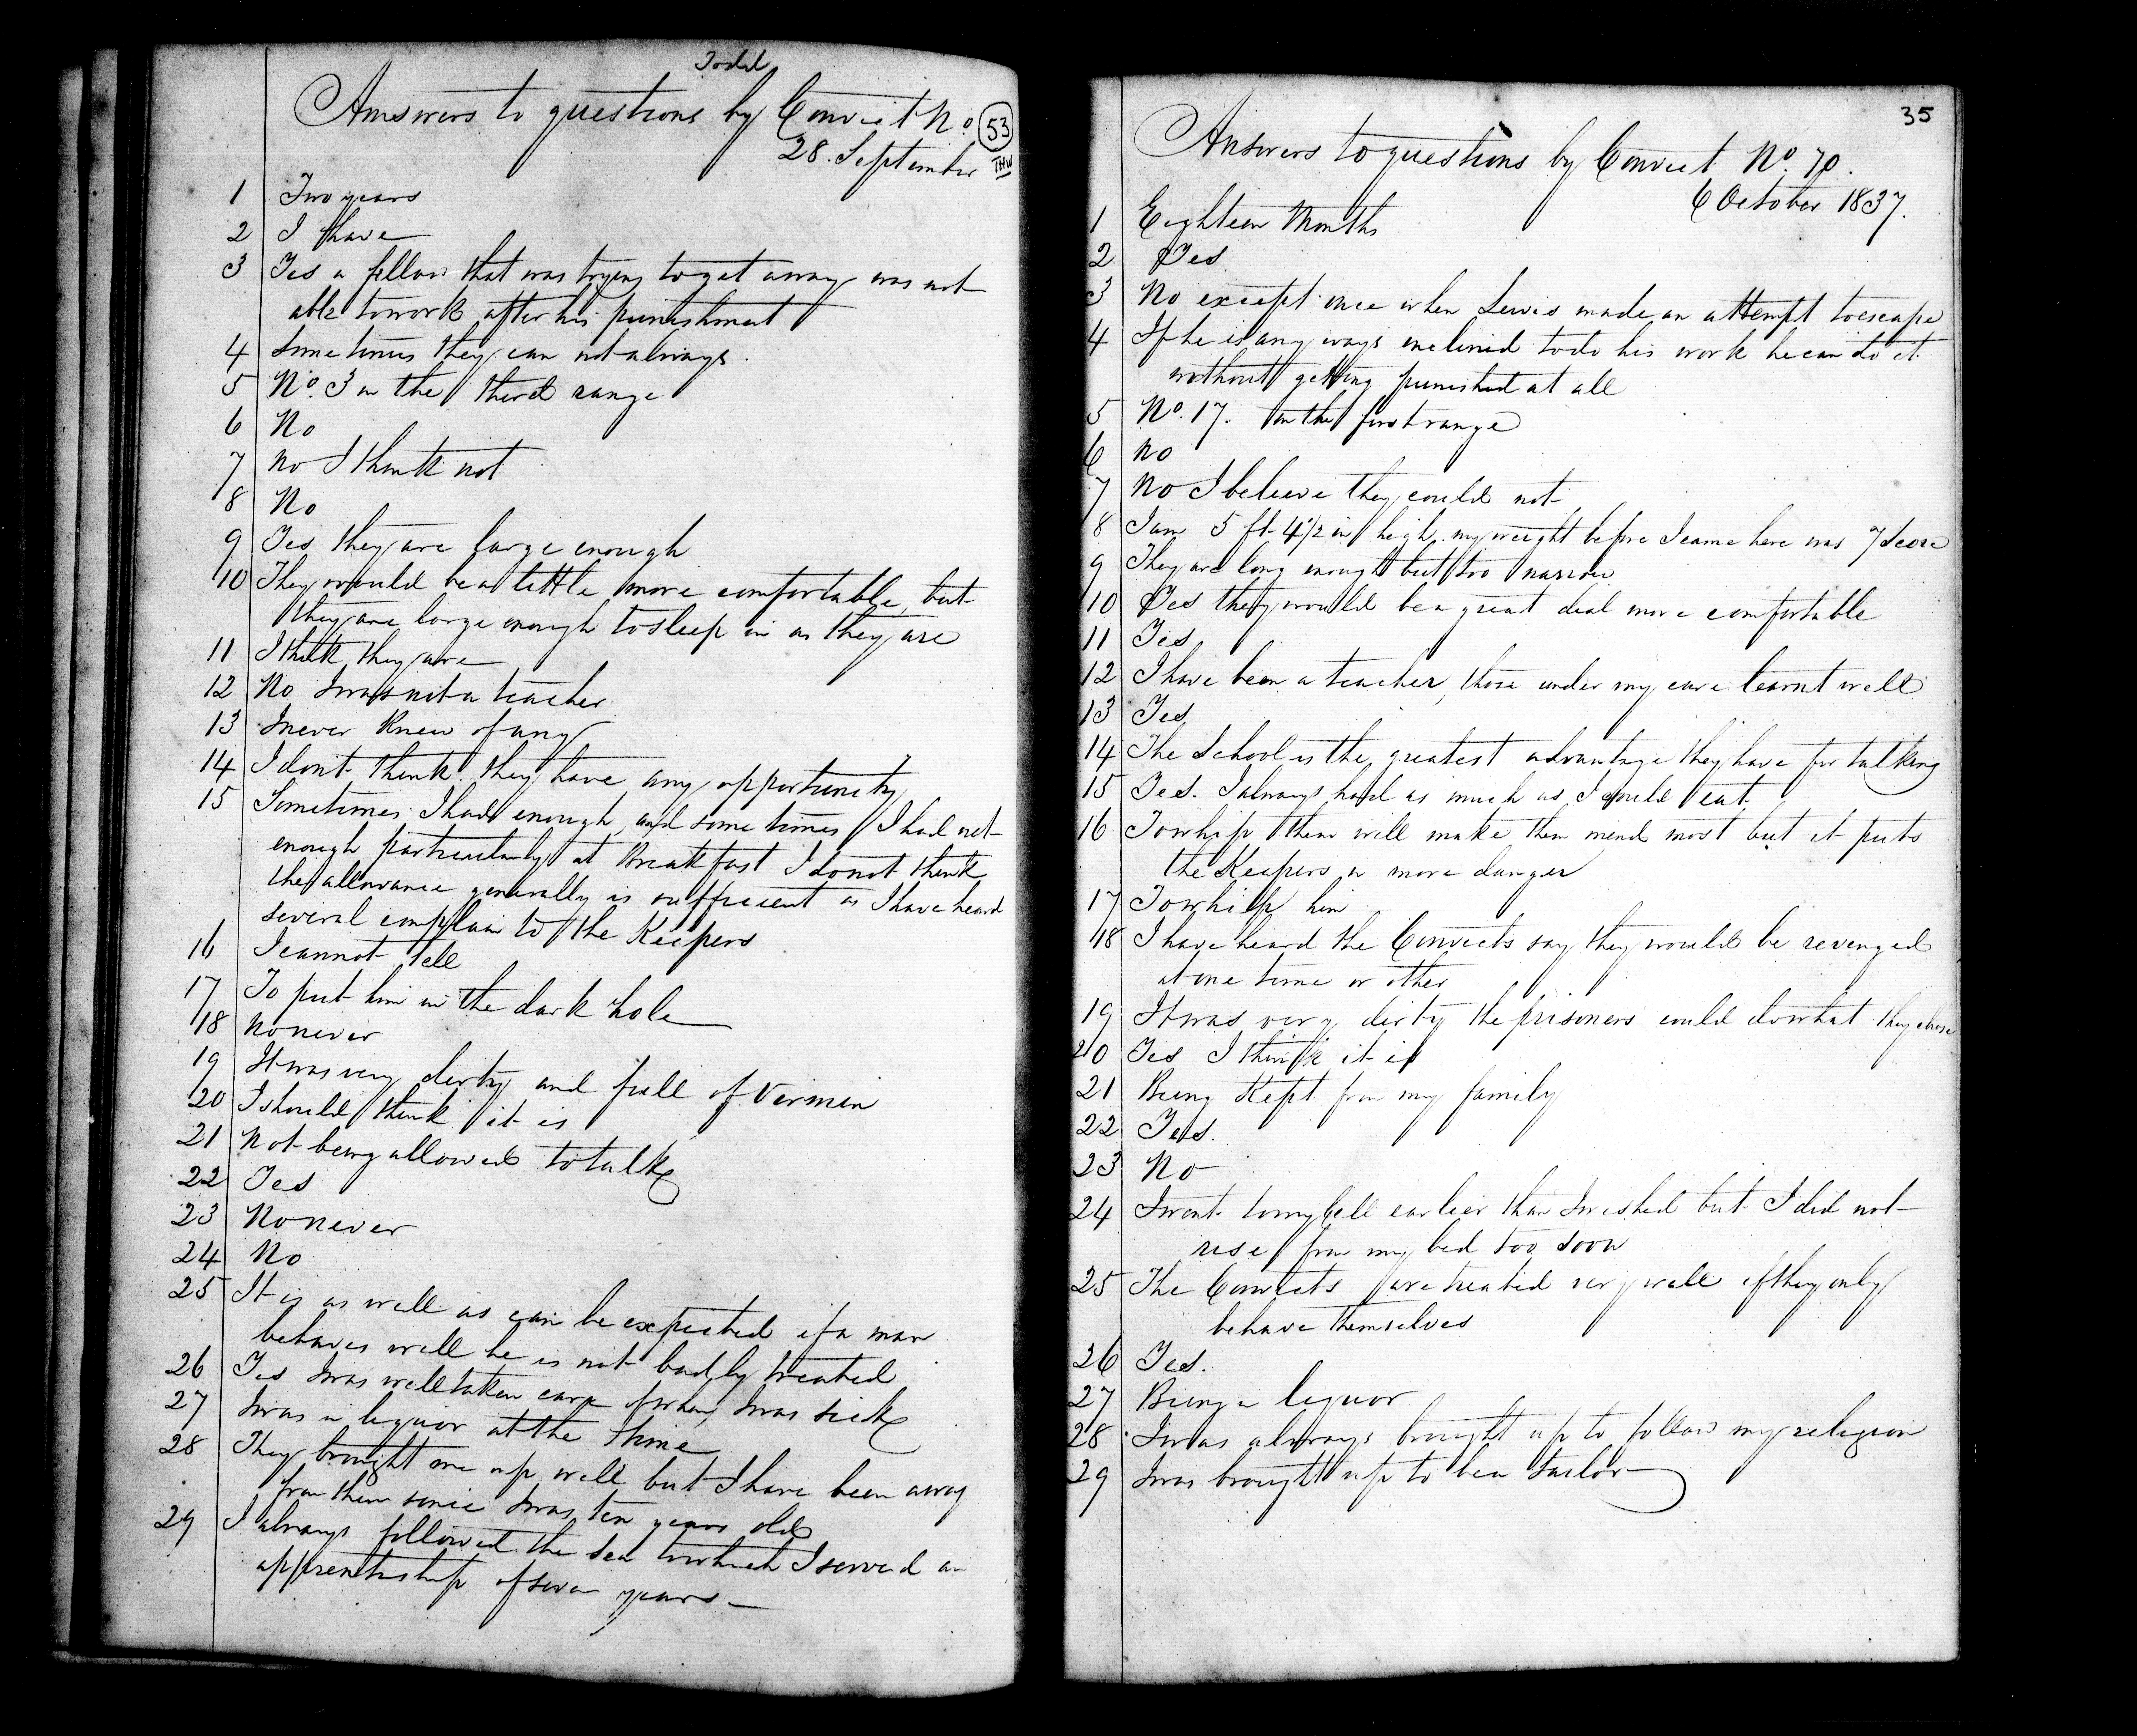 Todd
Answers to questions by Convict No. 53
28. September THW
1 Two years
2 I have
3 Yes a fellow that was trying to get away was not
able to work after his punishment
4 Sometimes they can not always.
5 No. 3 in the third range
6 No
7 No I think not
8 No
9 Yes they are large enough
10 They would be a little more comfortable, but
they are large enough to sleep in as they are
11 I think they are
12 No I was not a teacher
13 I never knew of any
14 I dont think they have any opportunity
15 Sometimes I had enough, and some times I had not
enough particularly at Breakfast I do not think
the allowance generally is sufficient as I have heard
several complain to the Keepers
16 I cannot tell
17 To put him in the dark hole
18 No never
19 It was very dirty and full of Vermin
20 I should think it is
21 Not being allowed to talk
22 Yes
23 No never
24 No
25 It is as well as can be expected if a man
behaves well he is not badly treated
26 Yes I was well taken care of when I was sick
27 I was in liquor at the time
28 They brought me up well but I have been away
from them since I was ten years old
29 I always followed the Sea to which I served an
apprentiship of seven years
35
Answers to questions by Convict No. 70.
6 October 1837.
1 Eighteen Months
2 Yes
3 No except once when Lewis made an attempt to escape
4 If he is any ways inclined to do his work he can do it
without getting punished at all
5 No. 17. in the first range
6 No
7 No I believe they could not
8 I am 5 ft 4 1/2 in high. my weight before I came here was 7 Score
9 They are long enough but too narrow
10 Yes they would be a great deal more comfortable
11 Yes
12 I have been a teacher, those under my care learnt well
13 Yes
14 The School is the greatest advantage they have for talking
15 Yes. I always had as much as I could eat.
16 To whip them will make them mind most but it puts
the Keepers in more danger
17 To whip him
18 I have heard the Convicts say they would be revenged
at one time or other
19 It was very dirty the prisoners could do what they chose
20 Yes I think it is
21 Being Kept from my family
22 Yes.
23 No
24 I went to my Cell earlier than I wished but I did not
rise from my bed too soon
25 The Convicts are treated very well if they only
behave themselves
26 Yes.
27 Being in liquor
28 I was always brought up to follow my religion
29 I was brought up to be a Tailor